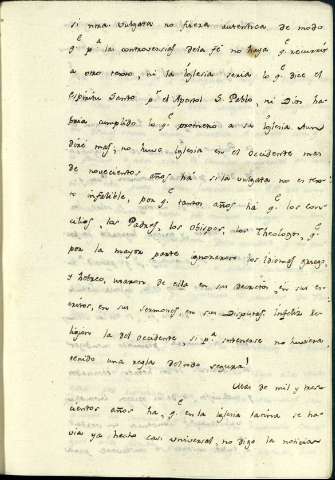 si nra. vulgata no fuera autentica de modo
q.e p.a la controversias dela fé no haya q.e recurrir
a otro texto, ni la Iglesia seria lo q.e dice el
espiritu Santo p.r el Apostol S. Pablo, ni Dios ha-
bria cumplido lo q.e prometio a su Iglesia. Aun
dire mas, no huvo iglesia en el occidente mas
de novecientos años há si la vulgata no es tex-
to infalible, por q.e tantos años há q.e los con-
cilios, los Padres, los obispos, los Theologos, q.e
por la mayor parte ignoraron los idiomas griego,
y hebreo, usaron de ella en sus decretos, en sus es-
critos, en sus sermones, en sus disputas. Infeliz Re-
ligion la del occidente, si p.a entenerse no huviera
tenido una regla deltodo segura!
Mas de mil y tres-
cientos años ha, q.e en la iglesia latina se ha-
via ya hecho casi universal, no digo la noticia